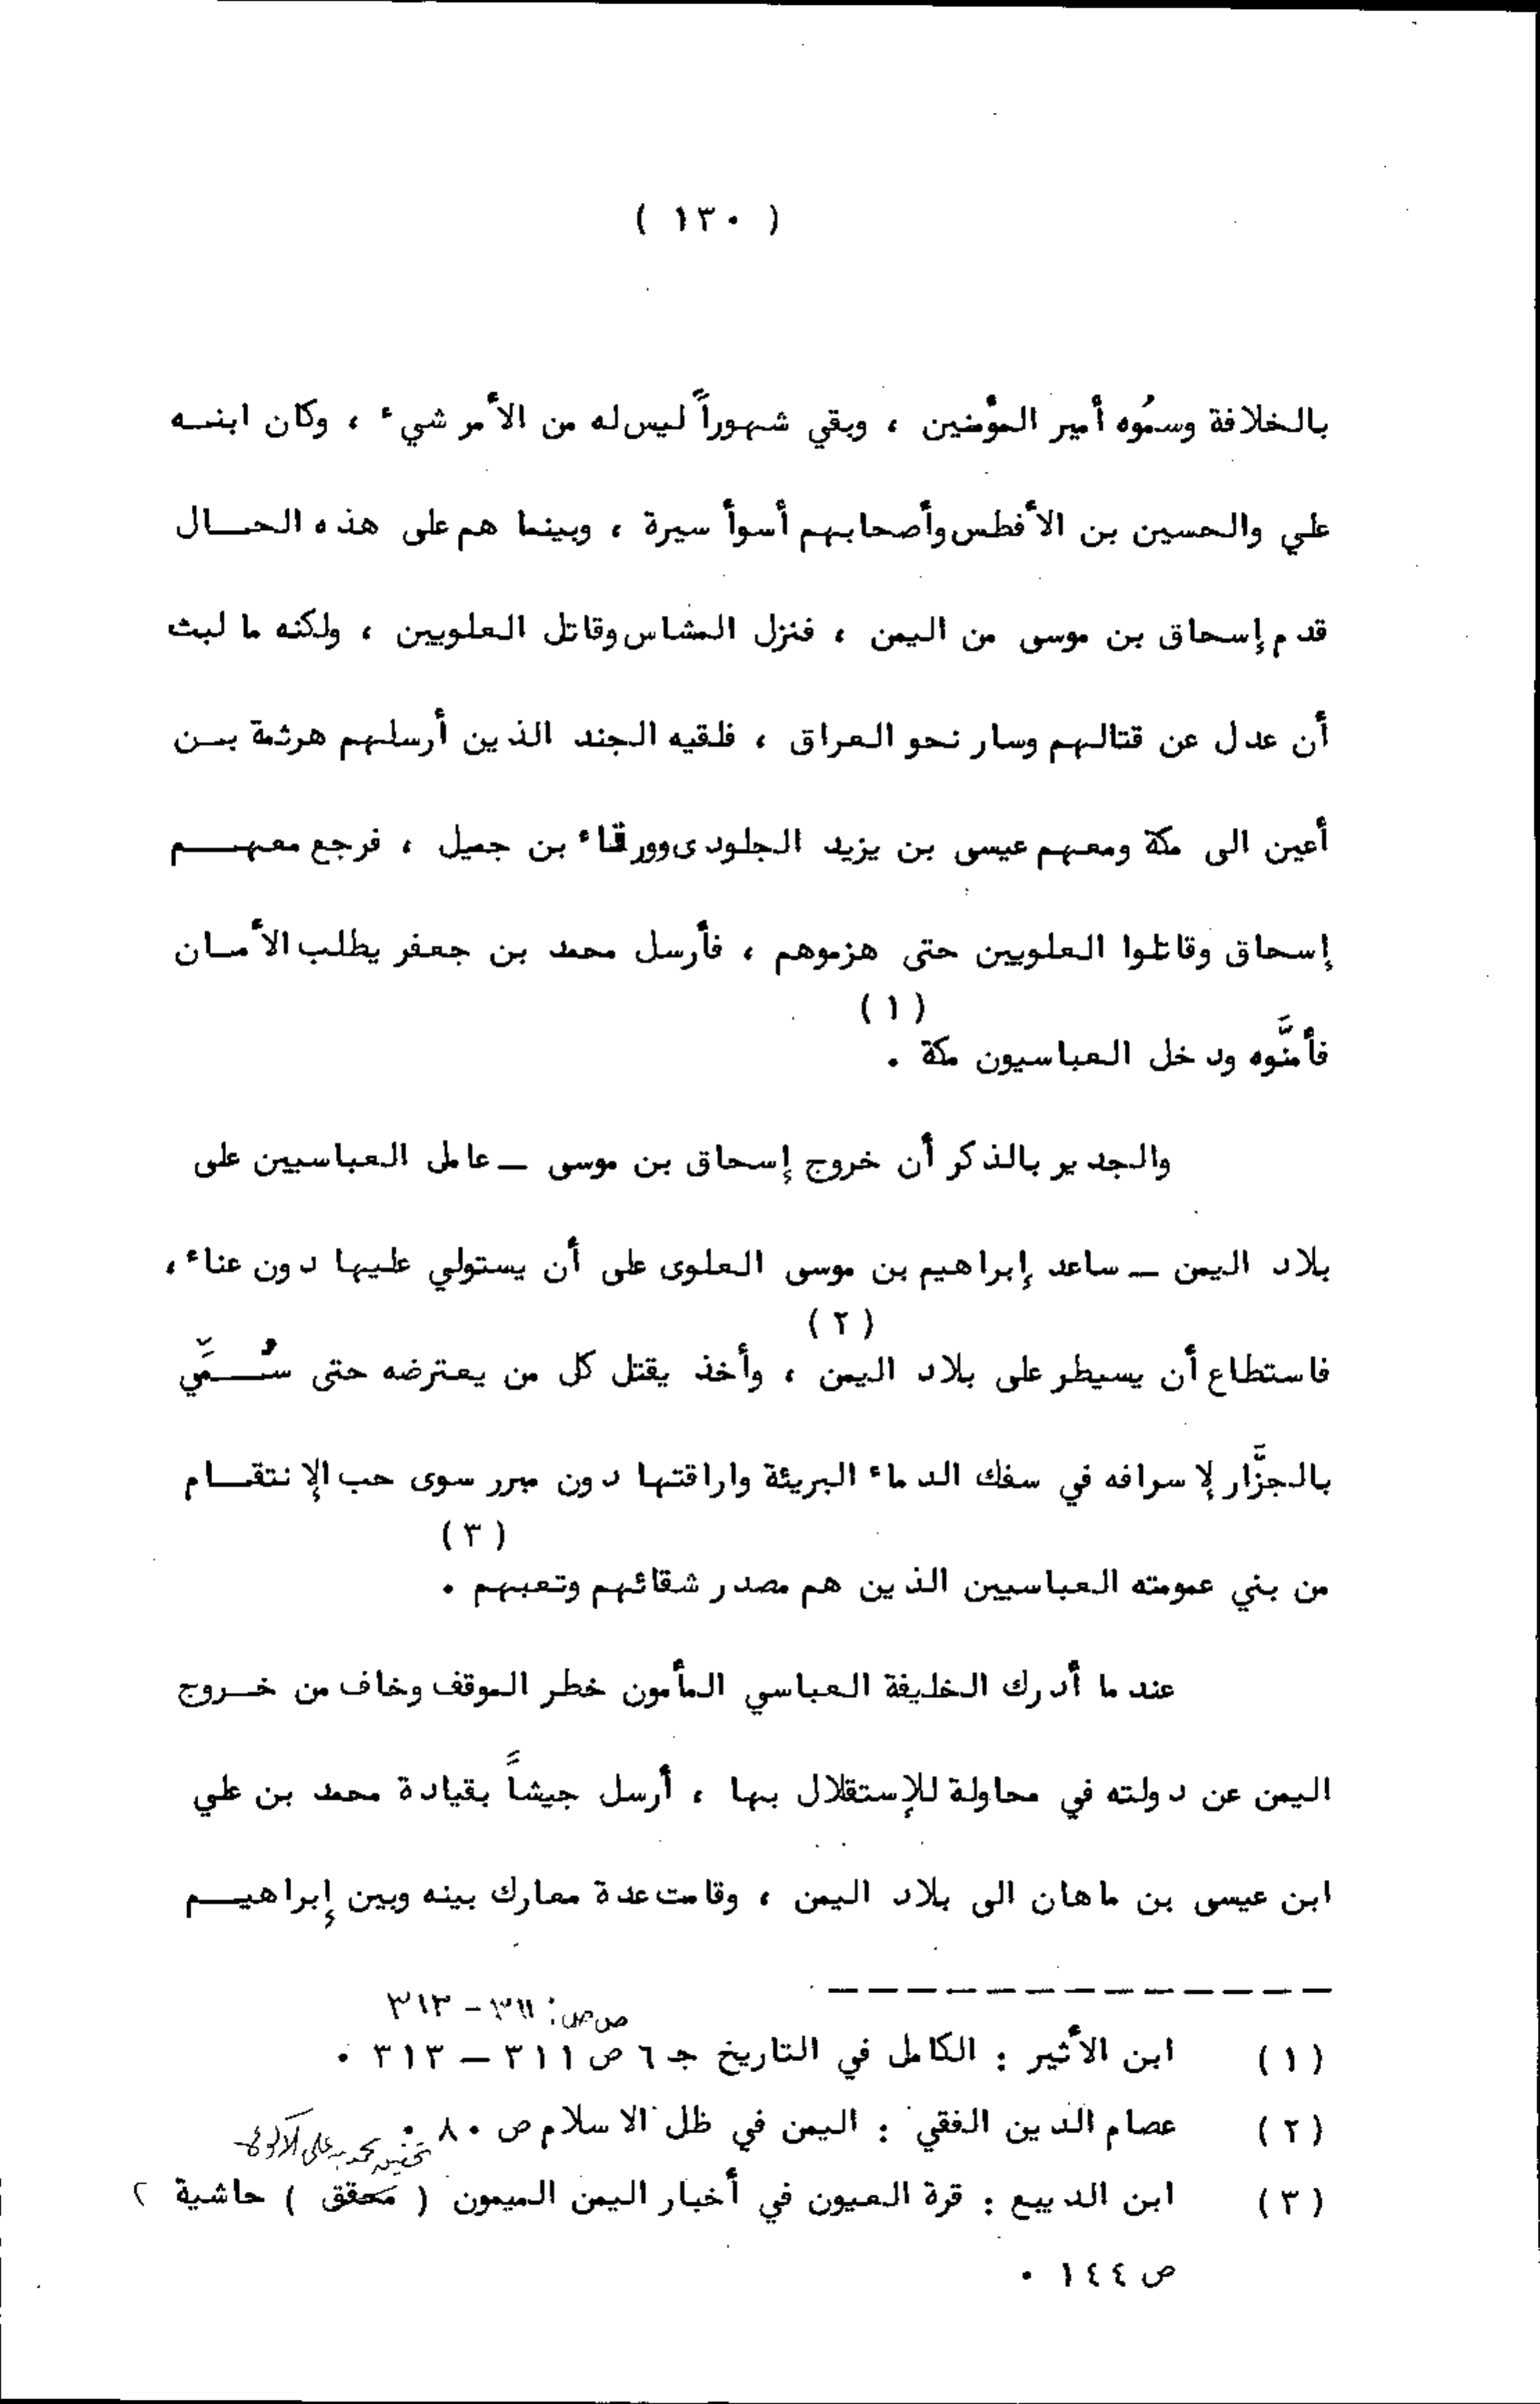 ( ١٣٠ )
بالخلافة وسمُوه أمير المؤمنين ، وبقي شهوراً ليس له من الأمر شيء ، وكان ابنــه
علي والحسين بن الأفطس وأصحابهم أسوأ سيرة ، وبينما هم على هذه الحــال
قدم إسحاق بن موسى من اليمن ، فنزل المشاس وقاتل العلويين ، ولكنه ما لبث
أن عدل عن قتالهم وسار نحو العراق ، فلقيه الجند الذين أرسلهم هرثمة بــن
أعين الى مكة ومعهم عيسى بن يزيد الجلودى وورقاء بن جميل ، فرجع معهــم
إسحاق وقاتلوا العلويين حتى هزموهم ، فأرسل محمد بن جعفر يطلب الأمــان
(١)
فأمنَّوه ودخل العباسيون مكة .
والجدير بالذكر أن خروج إسحاق بن موسى ــ عامل العباسيين على
بلاد اليمن ــ ساعد إبراهيم بن موسى العلوى على أن يستولي عليها دون عناء ،
(٢)
فاستطاع أن يسيطر على بلاد اليمن ، وأخذ يقتل كل من يعترضه حتى سُــمِّي
بالجزَّار لإسرافه في سفك الدماء البريئة واراقتها دون مبرر سوى حب الإنتقــام
(٣)
من بني عمومته العباسيين الذين هم مصدر شقائهم وتعبهم .
عندما أدرك الخليفة العباسي المأمون خطر الموقف وخاف من خــروج
اليمن عن دولته في محاولة للإستقلال بها ، أرسل جيشاً بقيادة محمد بن علي
ابن عيسى بن ماهان الى بلاد اليمن ، وقامت عدة معارك بينه وبين إبراهيــم
ص ص : ٣١١ – ٣١٣
(١) ابن الأثير : الكامل في التاريخ جـ ٦ ص ٣١١ – ٣١٣ .
(٢) عصام الدين الفقي : اليمن في ظل الاسلام ص ٨٠ .
تحقيق محمد بن علي الأكوع
(٣) ابن الديبع : قرة العيون في أخبار اليمن الميمون ( محقق ) حاشية ٢
ص ١٤٤ .